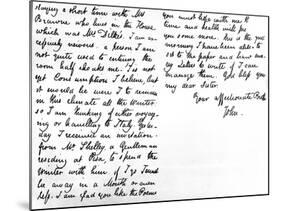 staying a short time with Mrs
Brawne who lives in the House
which was Mr Dilke's I am ex
cessively nervous: a person I am
not quite used to entering the
room half choaks me. It is not
yet Consumption I believe, but
it would be were I to remain
in this climate all the Winter:
so I am thinking of either voyag-
ing or travelling to Italy. Yester-
day I received an invitation
from Mr Shelley, a Gentleman
residing at Pisa, to spend the
Winter with him. if I go I must
be away in a Month or even
less. I am glad you like the Poems
you must hope with me that
time and health will pro
you some more. This is the
morning I have been able to
sit to the paper and have
Letters to write if I can
manage them. God bless you
my dear Sister.
Your affectionate Brother
John